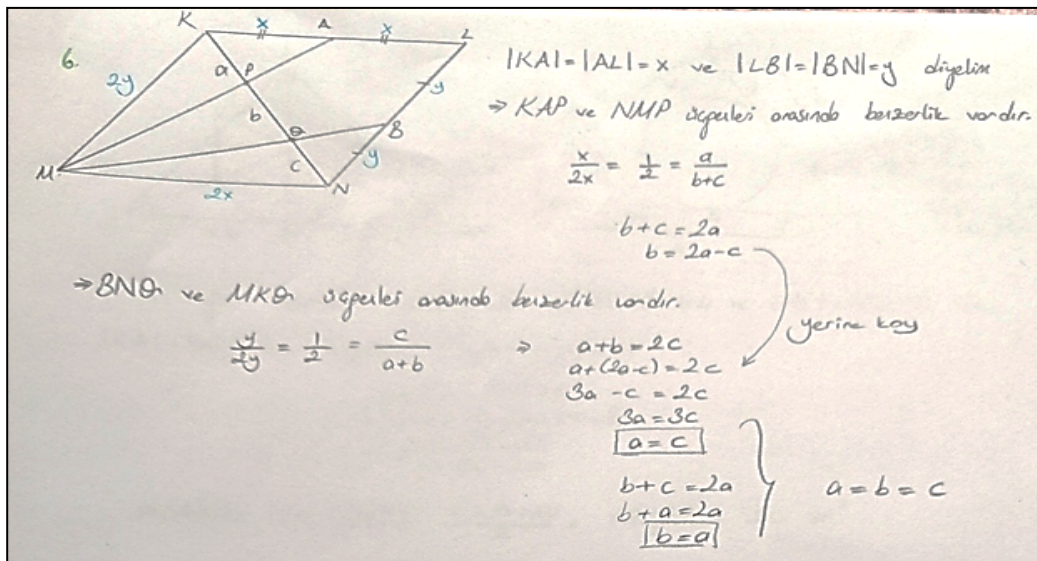 6.
K x A x L
2y a P b Q c B y y
M 2x N
|KA|=|AL|=x ve |LB|=|BN|=y diyelim
⇒ KAP ve NMP üçgenleri arasında benzerlik vardır.
x/2x = 1/2 = a/b+c
b+c=2a
b=2a-c
yerine koy
⇒ BNQ ve MKQ üçgenleri arasında benzerlik vardır.
y/2y = 1/2 = c/a+b ⇒ a+b=2c
a+(2a-c)=2c
3a-c=2c
3a=3c
a=c
b+c=2a
b+a=2a
b=a
a=b=c